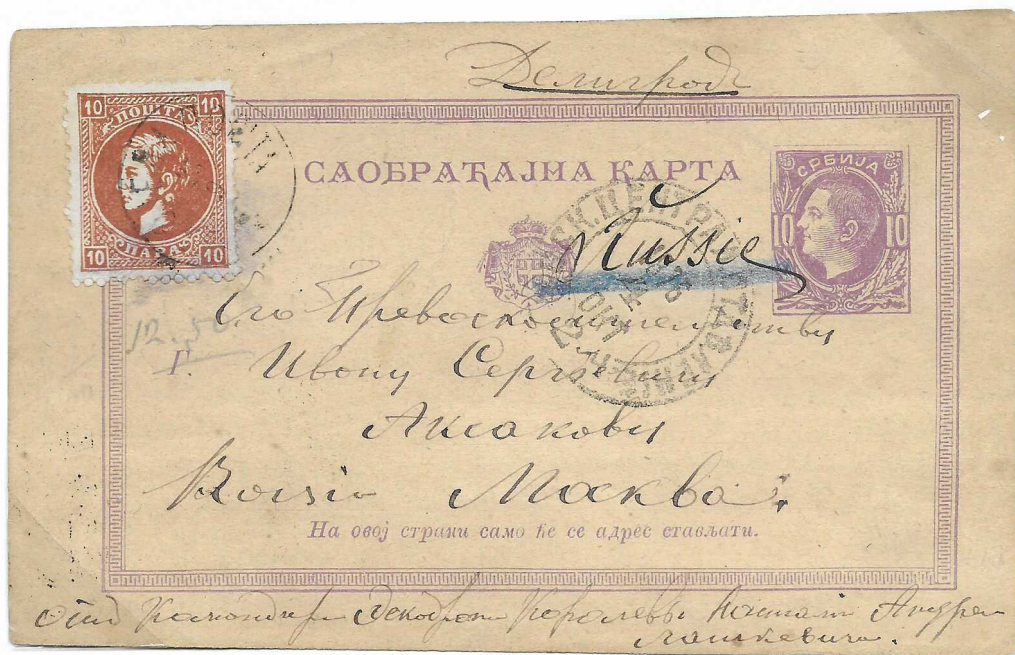 Делиградъ
10 10
ПОШТА
10 ПАРА 10
САОБРАЋАЈНА КАРТА
СРБИЈА
10 10
Russie
Его Превосходительству
Г. Ивану Сергѣевичу
Аксакову
Москва.
На овој страни само ће се адрес стављати.
отъ Командира
Андрея
Лашкевича.